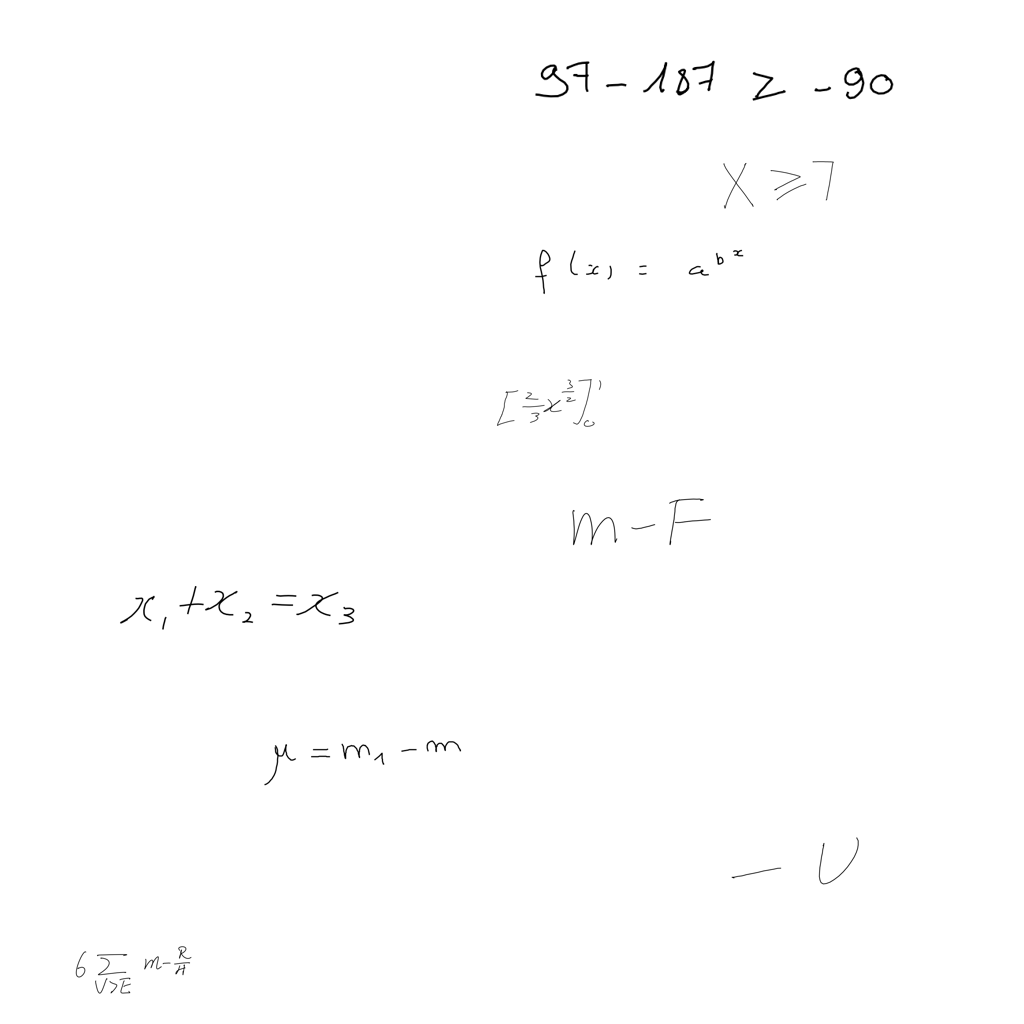 97 - 187 ≥ -90
X ⩾ 7
f(x) = a^{b^x}
[\frac{2}{3}x^{\frac{3}{2}}]_0^1
m - F
x_1 + x_2 = x_3
μ = m_1 - m
- U
6 \sum_{V>E} m - \frac{R}{H}